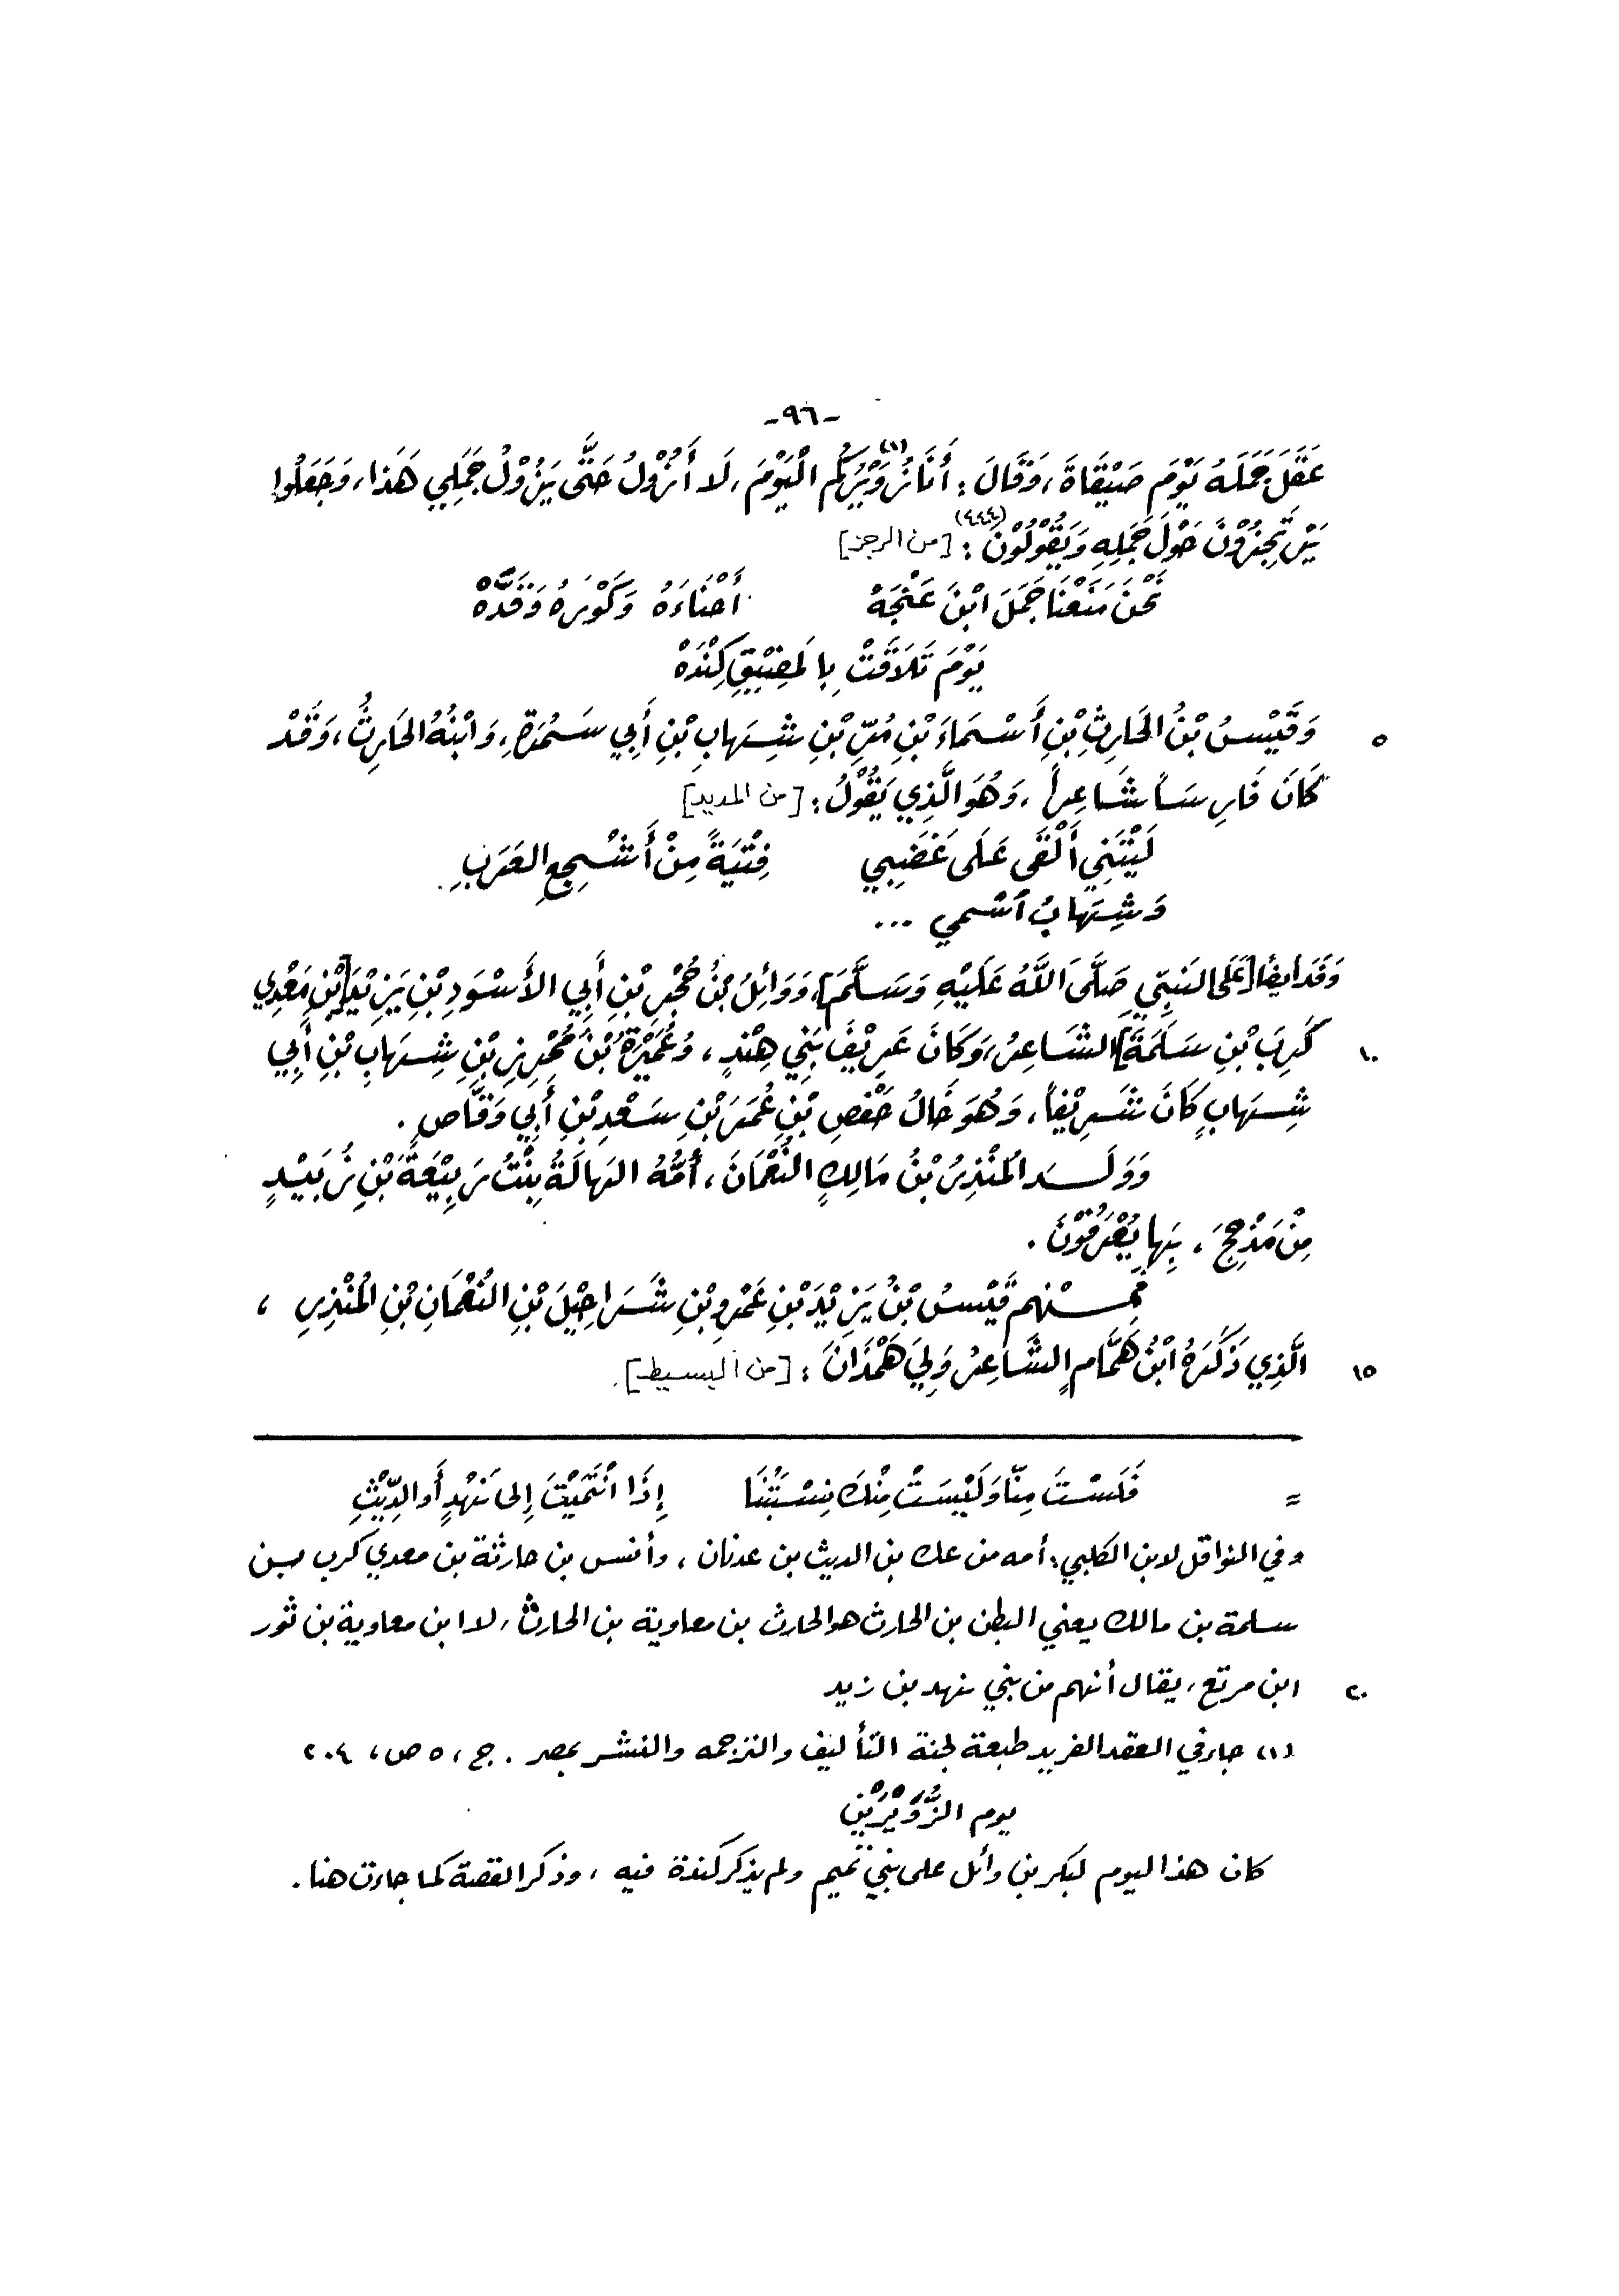 -٩٦-
عَقَلَ جَمَلَهُ يَوْمَ صَيْقَاةَ، وَقَالَ: أَنَا زُوَيْرُكُم(١) الْيَوْمَ، لَا أَزُوْلُ حَتَّى يَزُوْلُ جَمَلِي هَذَا، وَجَعَلُوا
يَرْتَجِزُوْنَ حَوْلَ جَمَلِهِ وَيَقُوْلُوْنَ(٤٤٤): [من الرجز]
نَحْنَ مَنَعْنَا جَمَلَ ابْنَ عَنْجَهْ أَحْنَاءَهُ وَكَوْرَهُ وَقَدَّهْ
يَوْمَ تَلَاقَتْ بِالمَضِيْقِ كِنْدَهْ
٥ وَقَيْسُ بْنُ الحَارِثِ بْنِ أَسْمَاءَ بْنِ مُرِّ بْنِ شِهَابِ بْنِ أَبِي سَمُرَةِ، وَابْنُهُ الحَارِثُ، وَقَدْ
كَانَ فَارِسَاً شَاعِراً، وَهُوَ الَّذِي يَقُوْلُ: [من المديد]
لَيْتَنِي أَلْقَى عَلَى غَضَبِي فِتْيَةً مِنْ أَشْجِعِ العَرَبِ
وَشِهَابُ اسْمي ...
وَفَدَ أيضاً [عَلَى النَبِيِّ صَلَّى اللَّهُ عَلَيْهِ وَسَلَّمَ]، وَوَائِلُ بْنُ حُجْرِ بْنِ أَبِي الأَسْوَدِ بْنِ يَزِيْدَ [بْنِ مَعْدِي
١٠ كَرِبَ بْنِ سَلَمَةَ] الشَاعِرُ، وَكَانَ عَرِيْفَ بَنِي هِنْدٍ، وَعُمَيْرَةُ بْنُ مُحْرِزِ بْنِ شِهَابِ بْنِ أَبِي
شِهَابٍ كَانَ شَرِيْفاً، وَهُوَ خَالُ حَفْصِ بْنِ عُمَرَ بْنِ سَعْدِ بْنِ أَبِي وَقَّاصٍ.
وَوَلَــدَ المُنْذِرُ بْنُ مَالِكٍ النُعْمَانَ، أُمُّهُ الهَالَةُ بِنْتُ رَبِيْعَةَ بْنِ زُبَيْدٍ
مِنْ مَذْحِجَ، بِهَا يُعْرَفُوْنَ.
فَمِــنْهم قَيْسُ بْنُ يَزِيْدَ بْنِ عَمْرِو بْنِ شَرَاحِيْلَ بْنِ النُعْمَانِ بْنِ المُنْذِرِ،
١٥ الَّذِي ذَكَرَهُ ابْنُ هَمَّامٍ الشَاعِرُ وَلِيَ هَمْدَانَ: [من البسيط]
= فَلَسْتَ مِنَّا وَلَيْسَتْ مِنْكَ نِسْبَتُنَا إِذَا انْتَمَيْتَ إِلى نَهْدٍ أو الدِّيْثِ
وفي النواقل لابن الكلبي: أمه من عك بن الديث بن عدنان، وأنس بن حارثة بن معدي كرب بــن
سلمة بن مالك يعني البطن بن الحارث هو الحارث بن معاوية بن الحارث، لا ابن معاوية بن ثور
٢٠ ابن مرتع، يقال أنهم من بني نهد بن زيد
(١) جاء في العقد الفريد طبعة لجنة التأليف والترجمه والنشر بمصر. ج، ٥ ص، ٢٠٤
يوم الزُّوَيْرَيْنِ
كان هذا اليوم لبكر بن وائل على بني تميم ولم يذكر كندة فيه، وذكر القصة كما جاءت هنا.